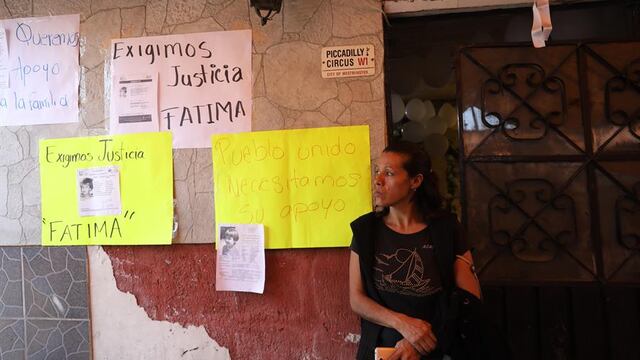 Queremos
Apoyo
a la familia
Exigimos
Justicia
FATIMA
PICCADILLY
CIRCUS W1
CITY OF WESTMINSTER
Exigimos Justicia
"FATIMA"
Pueblo unido
Necesitamos
Su apoyo